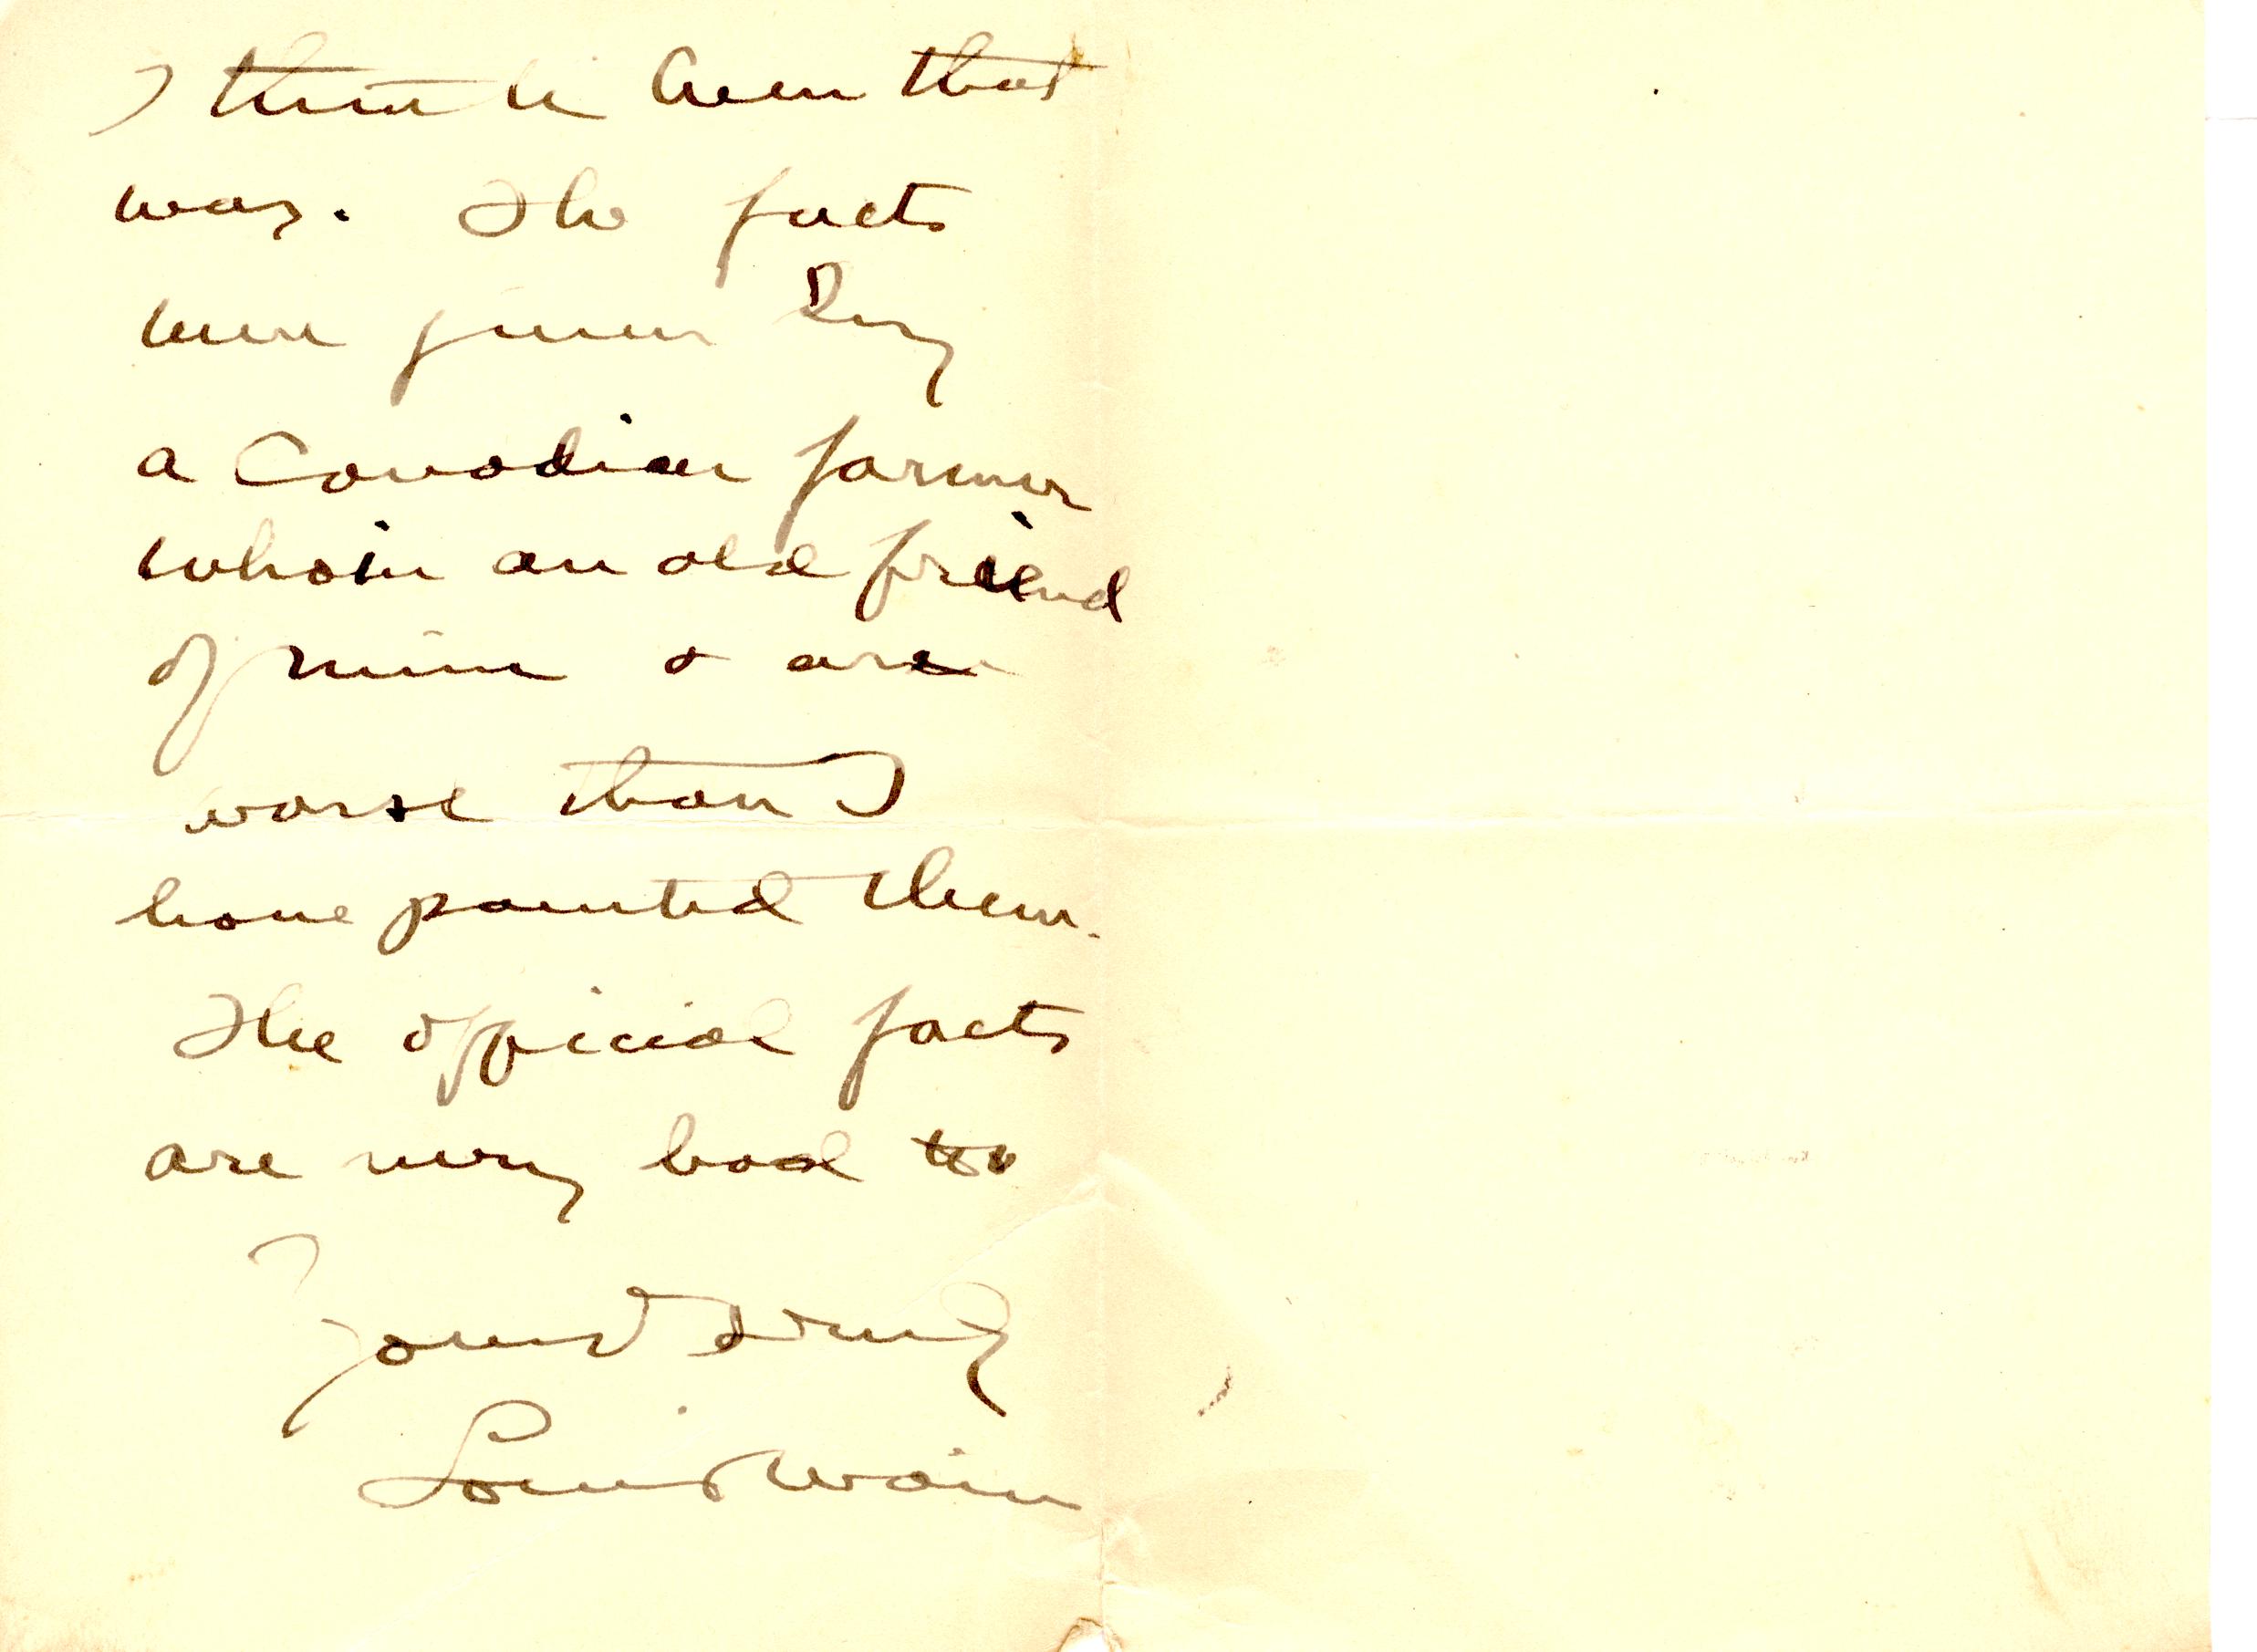 I that
way. The facts
were given by
a Canadian farmer
who is an old friend
of mine & are
worse than I
have painted them.
The official facts
are very bad too
Yours truly
Louis Wain